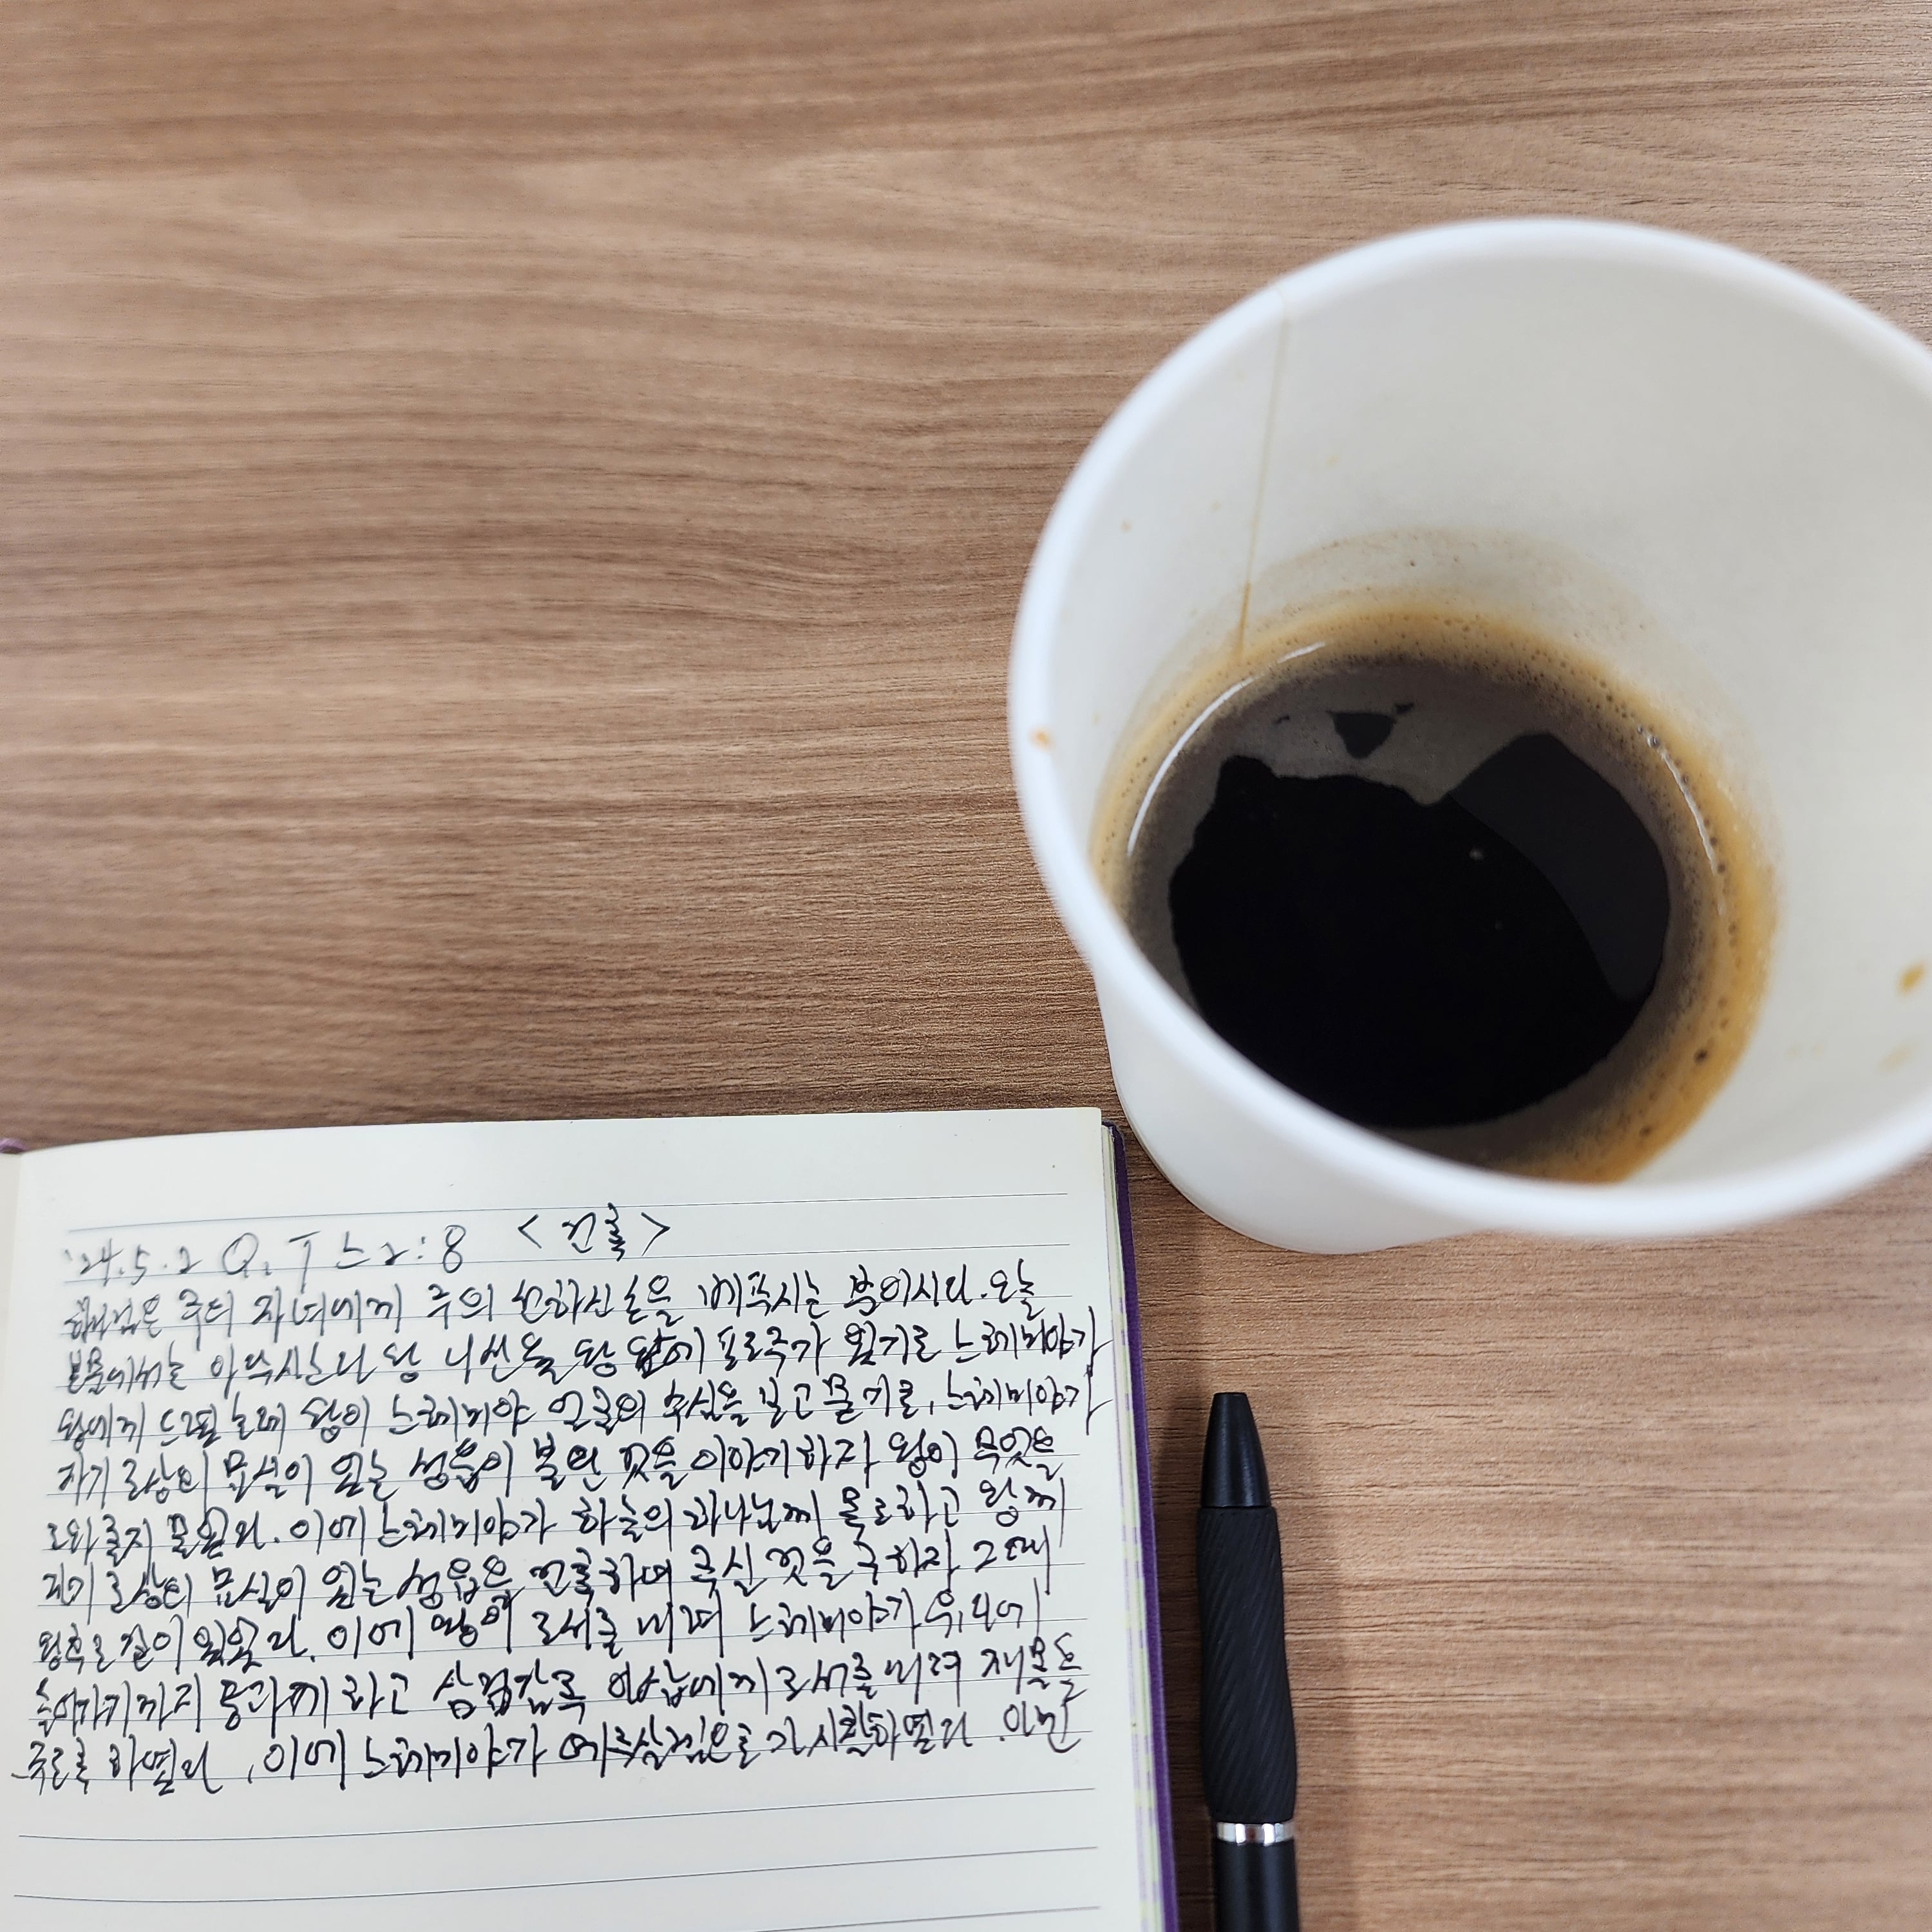 '24.5.2 Q.T 느2:8 <건축>
하나님은 주의 자녀에게 주의 선하신 손을 베푸시는 분이시다. 오늘
본문에서는 아닥사스다 왕 니산월 왕 앞에 포도주가 있기로 느헤미야가
왕에게 드릴 놀레 왕이 느헤미야 얼굴의 수심을 보고 묻기를, 느헤미야가
자기 조상의 묘실이 있는 성읍이 불탄 것을 이야기하자 왕이 무엇을
도와줄지 물었다. 이에 느헤미야가 하늘의 하나님께 묵도하고 왕께
자기 조상의 묘실이 있는 성읍을 건축하며 주실 것을 구하자 그때
왕후도 같이 있었다. 이에 왕이 조서를 내려 느헤미야가 유다에
들어가기까지 통과케 하고 삼림감독 아삽에게 조서를 내려 재목을
주도록 하였다. 이에 느헤미야가 예루살렘으로 가 시찰하였다. 이번